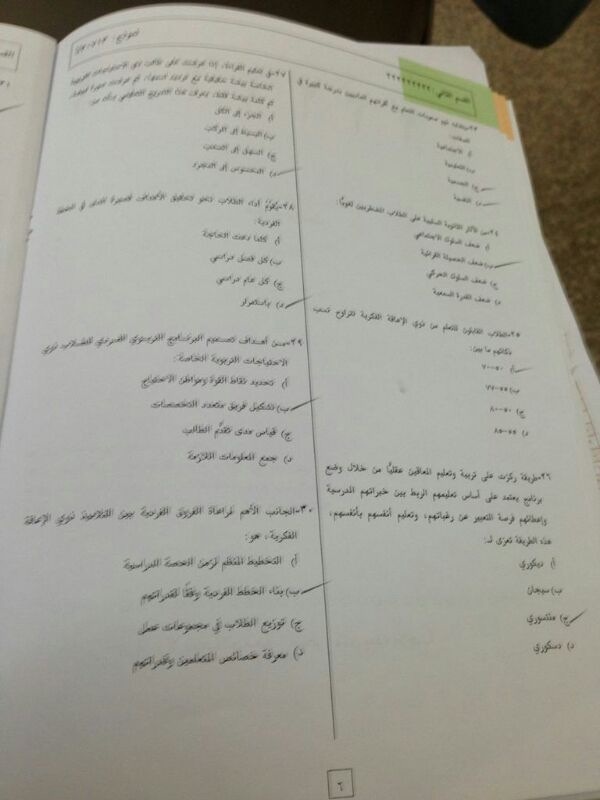 القسم الثاني: ٢٢٢٢٢٢٢٢٢
نموذج:
الصفات:
أ) الاجتماعية
ب) التعليمية
ج) الجسمية
د) النفسية
٢٤-من الآثار الثانوية السلبية على الطلاب المضطربين لغويًا:
أ) ضعف السلوك الاجتماعي
ب) ضعف الحصيلة القرائية
ج) ضعف السلوك الحركي
د) ضعف القدرة السمعية
٢٥-الطلاب القابلون للتعلم من ذوي الإعاقة الفكرية تتراوح نسب
ذكائهم ما بين:
أ) ٥٠-٧٠
ب) ٥٥-٧٧
ج) ٥٠-٨٠
د) ٥٥-٨٥
٢٦-طريقة ركزت على تربية وتعليم المعاقين عقليًا من خلال وضع
برنامج يعتمد على أساس تعليمهم الربط بين خبراتهم المدرسية
وإعطائهم فرصة التعبير عن رغباتهم، وتعليم أنفسهم بأنفسهم،
هذه الطريقة تعزى لـ:
أ) ديكوري
ب) سيجان
ج) منتسوري
د) دسكوري
أ) الجزء إلى الكل
ب) البسيط إلى المركب
ج) السهل إلى الصعب
د) المحسوس إلى المجرد
٢٨-يُقوَّم أداء الطلاب نحو تحقيق الأهداف قصيرة المدى في الخطط
الفردية:
أ) كلما دعت الحاجة
ب) كل فصل دراسي
ج) كل عام دراسي
د) باستمرار
٢٩-من أهداف تصميم البرنامج التربوي الفردي للطلاب ذوي
الاحتياجات التربوية الخاصة:
أ) تحديد نقاط القوة ومواطن الاحتياج
ب) تشكيل فريق متعدد التخصصات
ج) قياس مدى تقدُّم الطالب
د) جمع المعلومات اللازمة
٣٠-الجانب الأهم لمراعاة الفروق الفردية بين التلاميذ ذوي الإعاقة
الفكرية، هو:
أ) التخطيط المنظم لزمن الحصة الدراسية
ب) بناء الخطط الفردية وفقًا لقدراتهم
ج) توزيع الطلاب في مجموعات عمل
د) معرفة خصائص المتعلمين وقدراتهم
٦